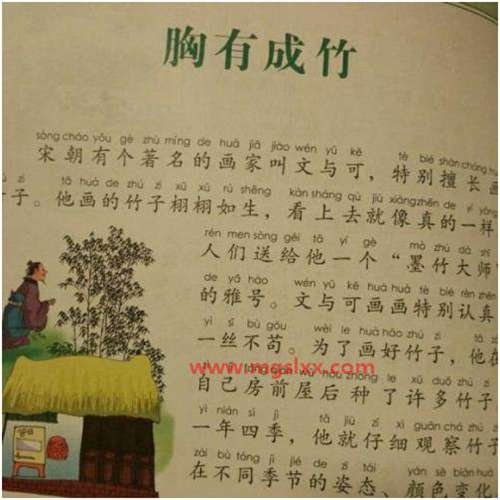 胸有成竹
sòng cháo yǒu gè zhù míng de huà jiā jiào wén yǔ kě
宋朝有个著名的画家叫文与可，特别擅长画
子。他画的竹子栩栩如生，看上去就像真的一样
rén men sòng gěi tā yí gè mò zhú dà shī
人们送给他一个“墨竹大师”
de yǎ hào wén yǔ kě huà huà tè bié rèn zhēn
的雅号。文与可画画特别认真
yì sī bù gǒu wèi le huà hǎo zhú zi tā zài
一丝不苟。为了画好竹子，他在
www.mgslxx.com
自己房前屋后种了许多竹子
yì nián sì jì tā jiù zǐ xì guān chá zhú
一年四季，他就仔细观察竹子
zài bù tóng jì jié de zī tài yán sè biàn huà
在不同季节的姿态、颜色变化